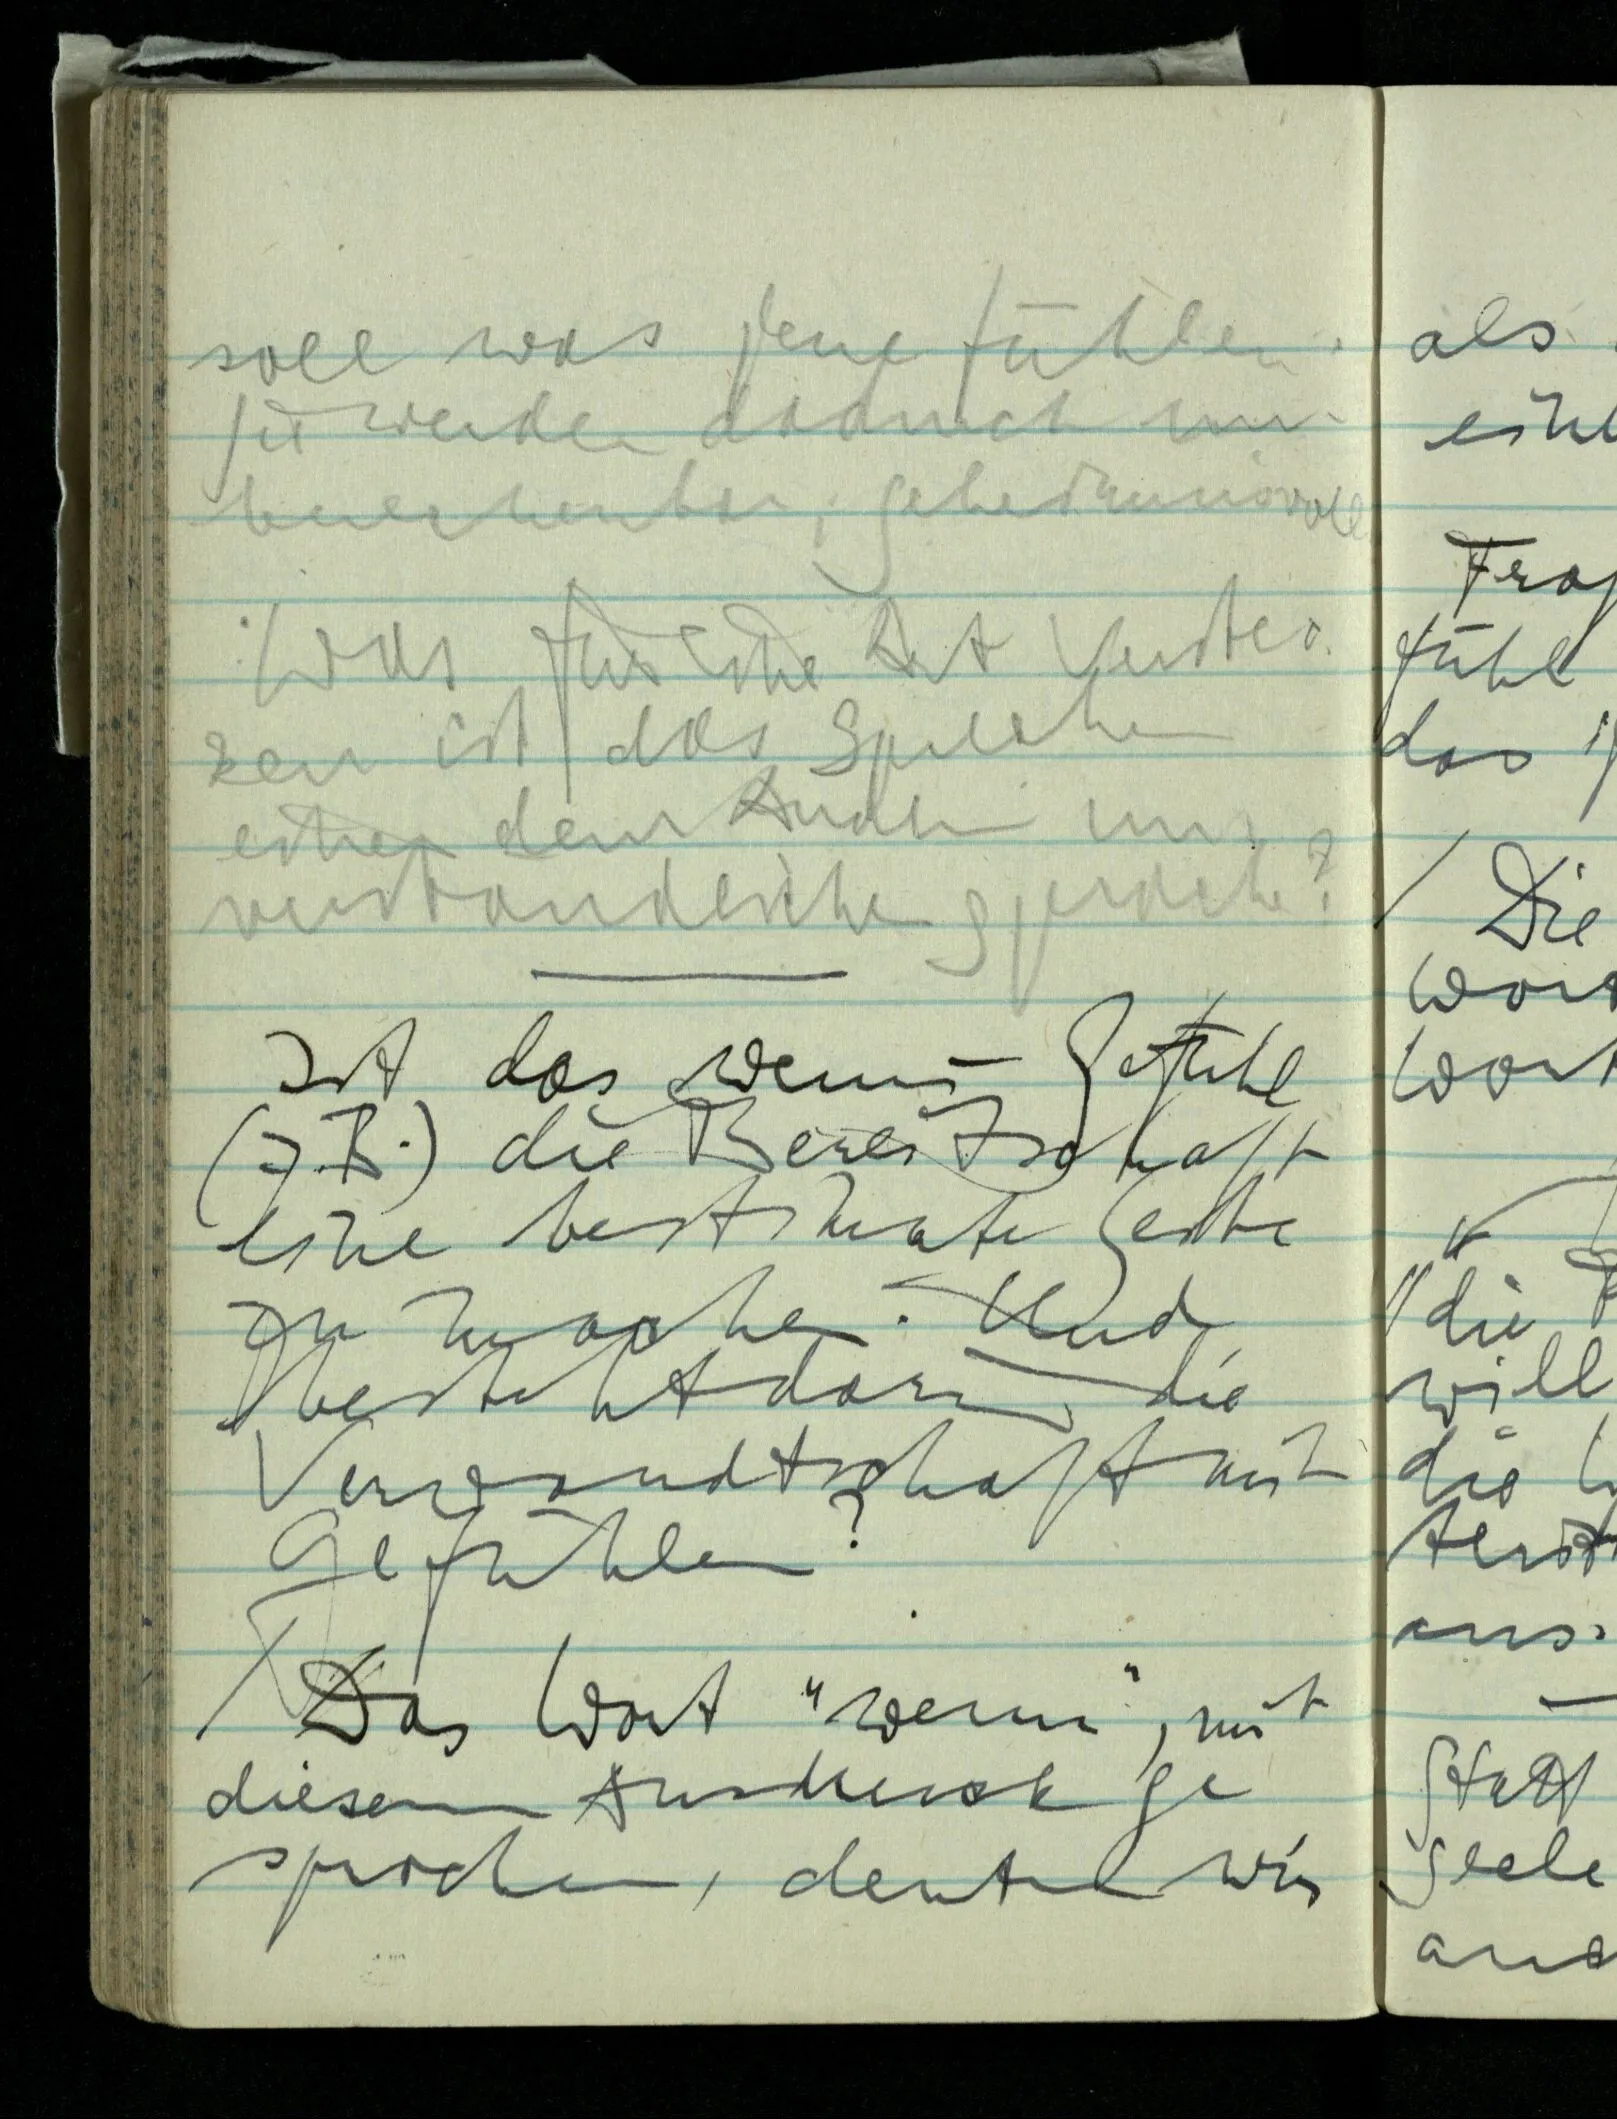 soll was jene fühlen.
Sie werden dadurch un-
berechenbar, geheimnisvoll
Was für eine Art
zen ist das Sprechen
einer dem Andern un
verständlichen Sprache?
Ist das wenn-Gefühl
(z.B.) die Bereitschaft
eine bestimmte Geste
zu machen. Und
besteht darin die
Verwandtschaft mit
Gefühlen?
/ Das Wort "wenn", mit
diesem Ausdruck ge
sprochen, deuten wir
als
eine
fühl
das
/ Die
Wort
Wort
"die
will
die
aus.
Statt
Seele